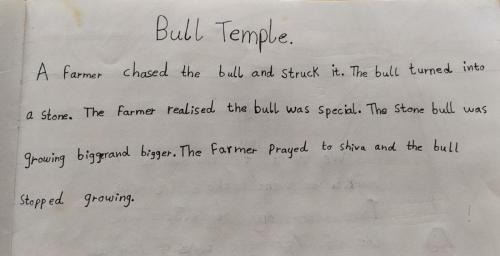 Bull Temple.
A farmer chased the bull and struck it. The bull turned into
a stone. The farmer realised the bull was special. The stone bull was
growing biggerand bigger. The farmer prayed to shiva and the bull
stopped growing.